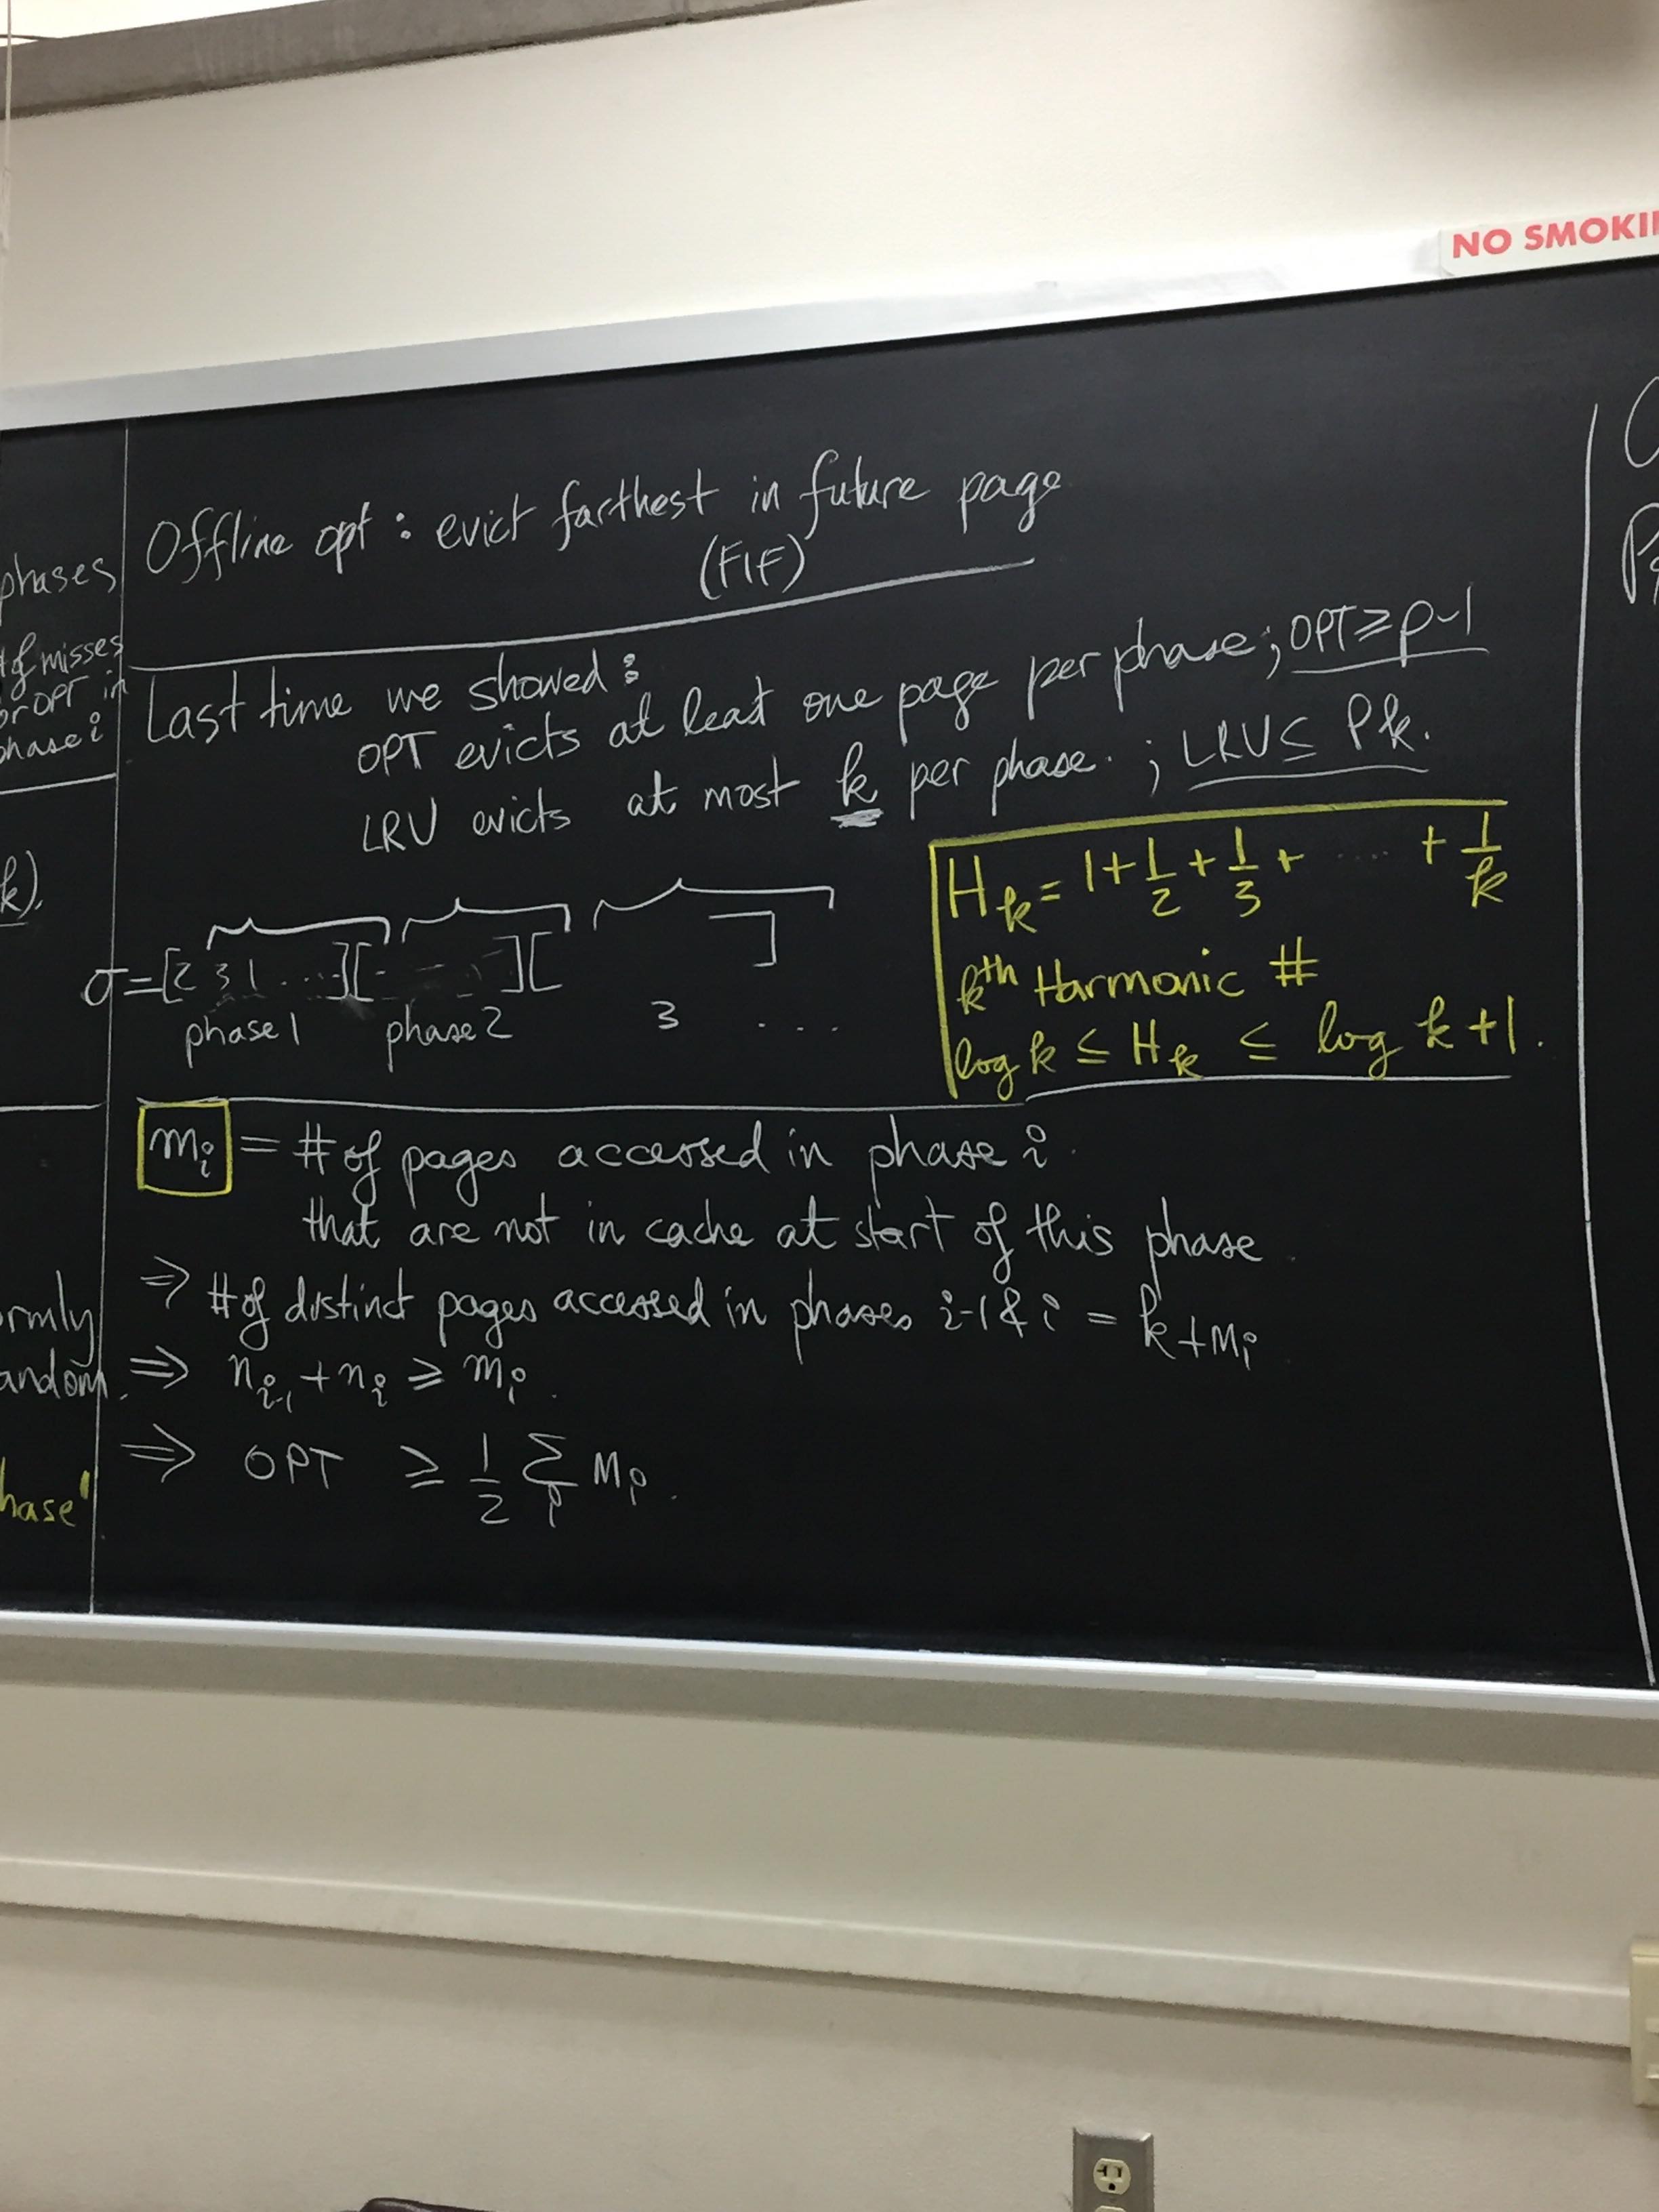 NO SMOKI
phases
# of misses
or OPT in
phase i
k).
ormly
andom.
hase"
Offline opt : evict farthest in future page
(FIF)
Last time we showed :
OPT evicts at least one page per phase ; OPT ≥ p-1
LRU evicts at most k per phase. ; LRU ≤ Pk.
H_k = 1 + 1/2 + 1/3 + ..... + 1/k
k^th Harmonic #
log k ≤ H_k ≤ log k + 1.
σ = [2 3 1 ....][- - -][ ]
phase 1 phase 2 3 ....
m_i = # of pages accessed in phase i.
that are not in cache at start of this phase.
⇒ # of distinct pages accessed in phases i-1 & i = k + m_i
⇒ n_{i-1} + n_i ≥ m_i.
⇒ OPT ≥ 1/2 Σ_i m_i.